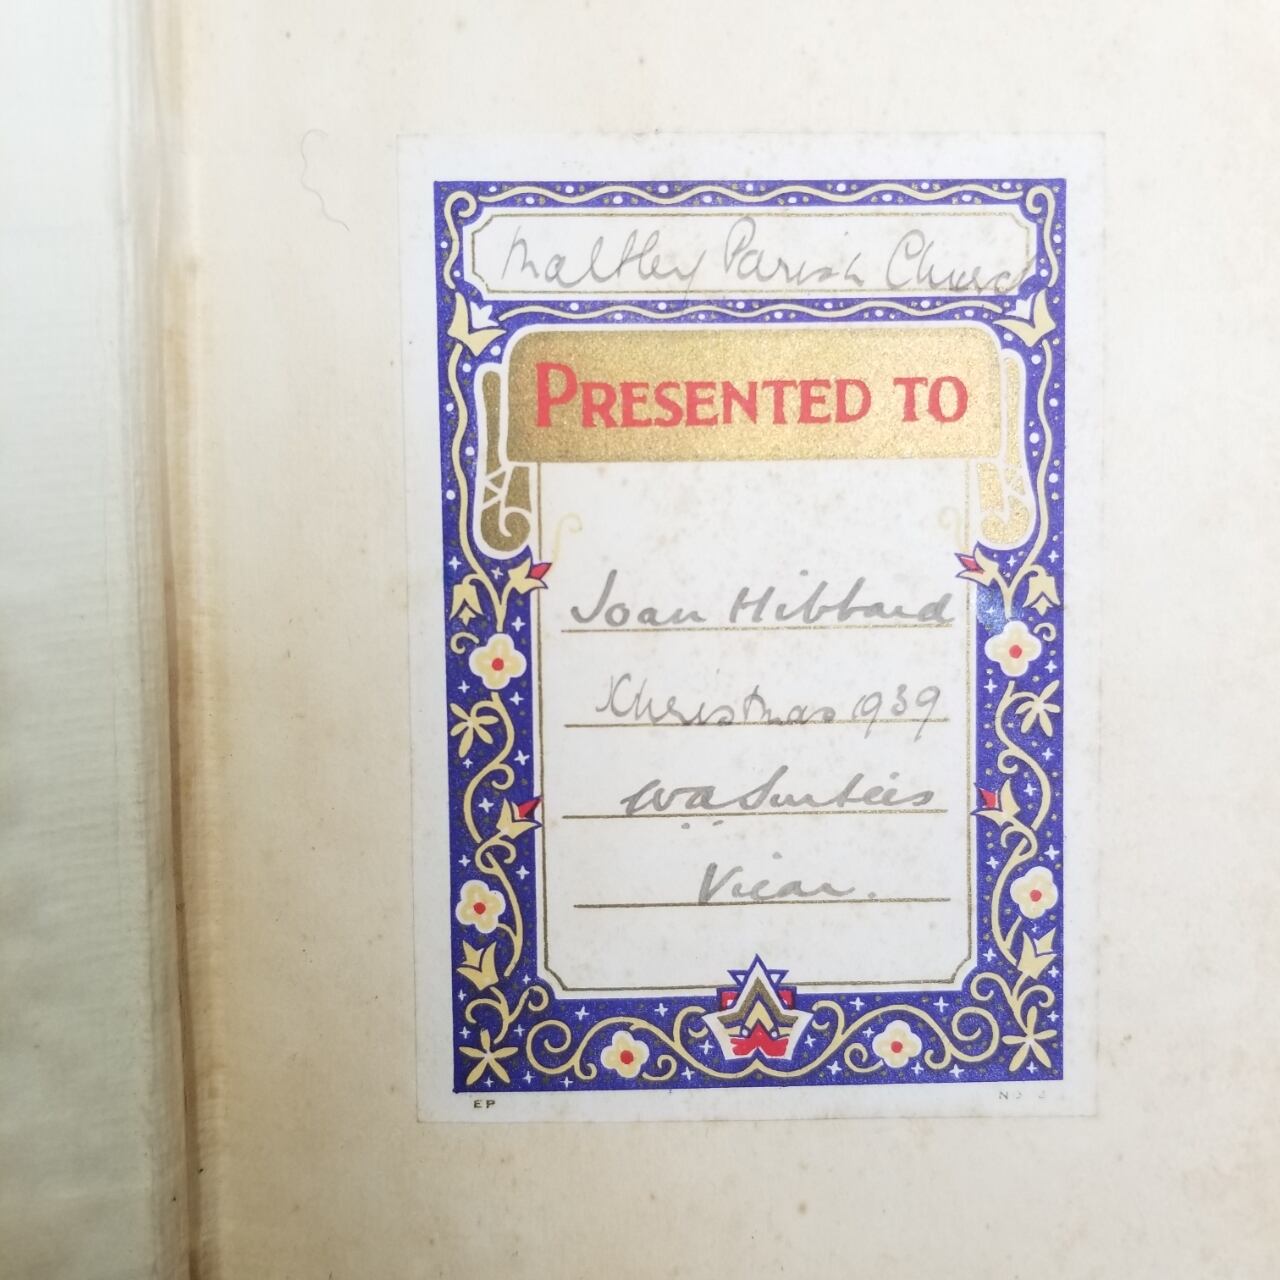 Maltby Parish Church
PRESENTED TO
Joan Hibbard
Christmas 1939
W A Surtees
Vicar.
EP